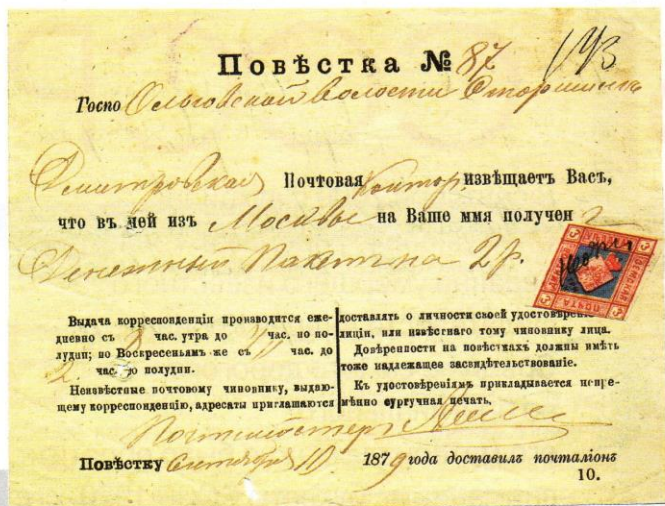 Повѣстка № 87
193
Госпо Ольговской Волости Старшинѣ
Дмитровская Почтовая Контор. извѣщаетъ Васъ,
что въ ней изъ Москвы на Ваше имя получен
Денежный Пакетъ на 2 р.
ЗЕМСКАЯ
ПОЧТА
Выдача корреспонденціи производится еже-
дневно съ 8 час. утра до час. по по-
лудни; по Воскресеньямъ же съ час. до
2 час. по полудни.
Неизвѣстные почтовому чиновнику, выдаю-
щему корреспонденцію, адресаты приглашаются
доставлять о личности своей удостовѣрен
лиціи, или извѣстнаго тому чиновнику лица.
Довѣренности на повѣсткахъ должны имѣть
тоже надлежащее засвидѣтельствованіе.
Къ удостовѣреніямъ прикладывается непре-
мѣнно сургучная печать.
Почтмейстеръ
Повѣстку Сентября 10 1879 года доставилъ почталіонъ
10.